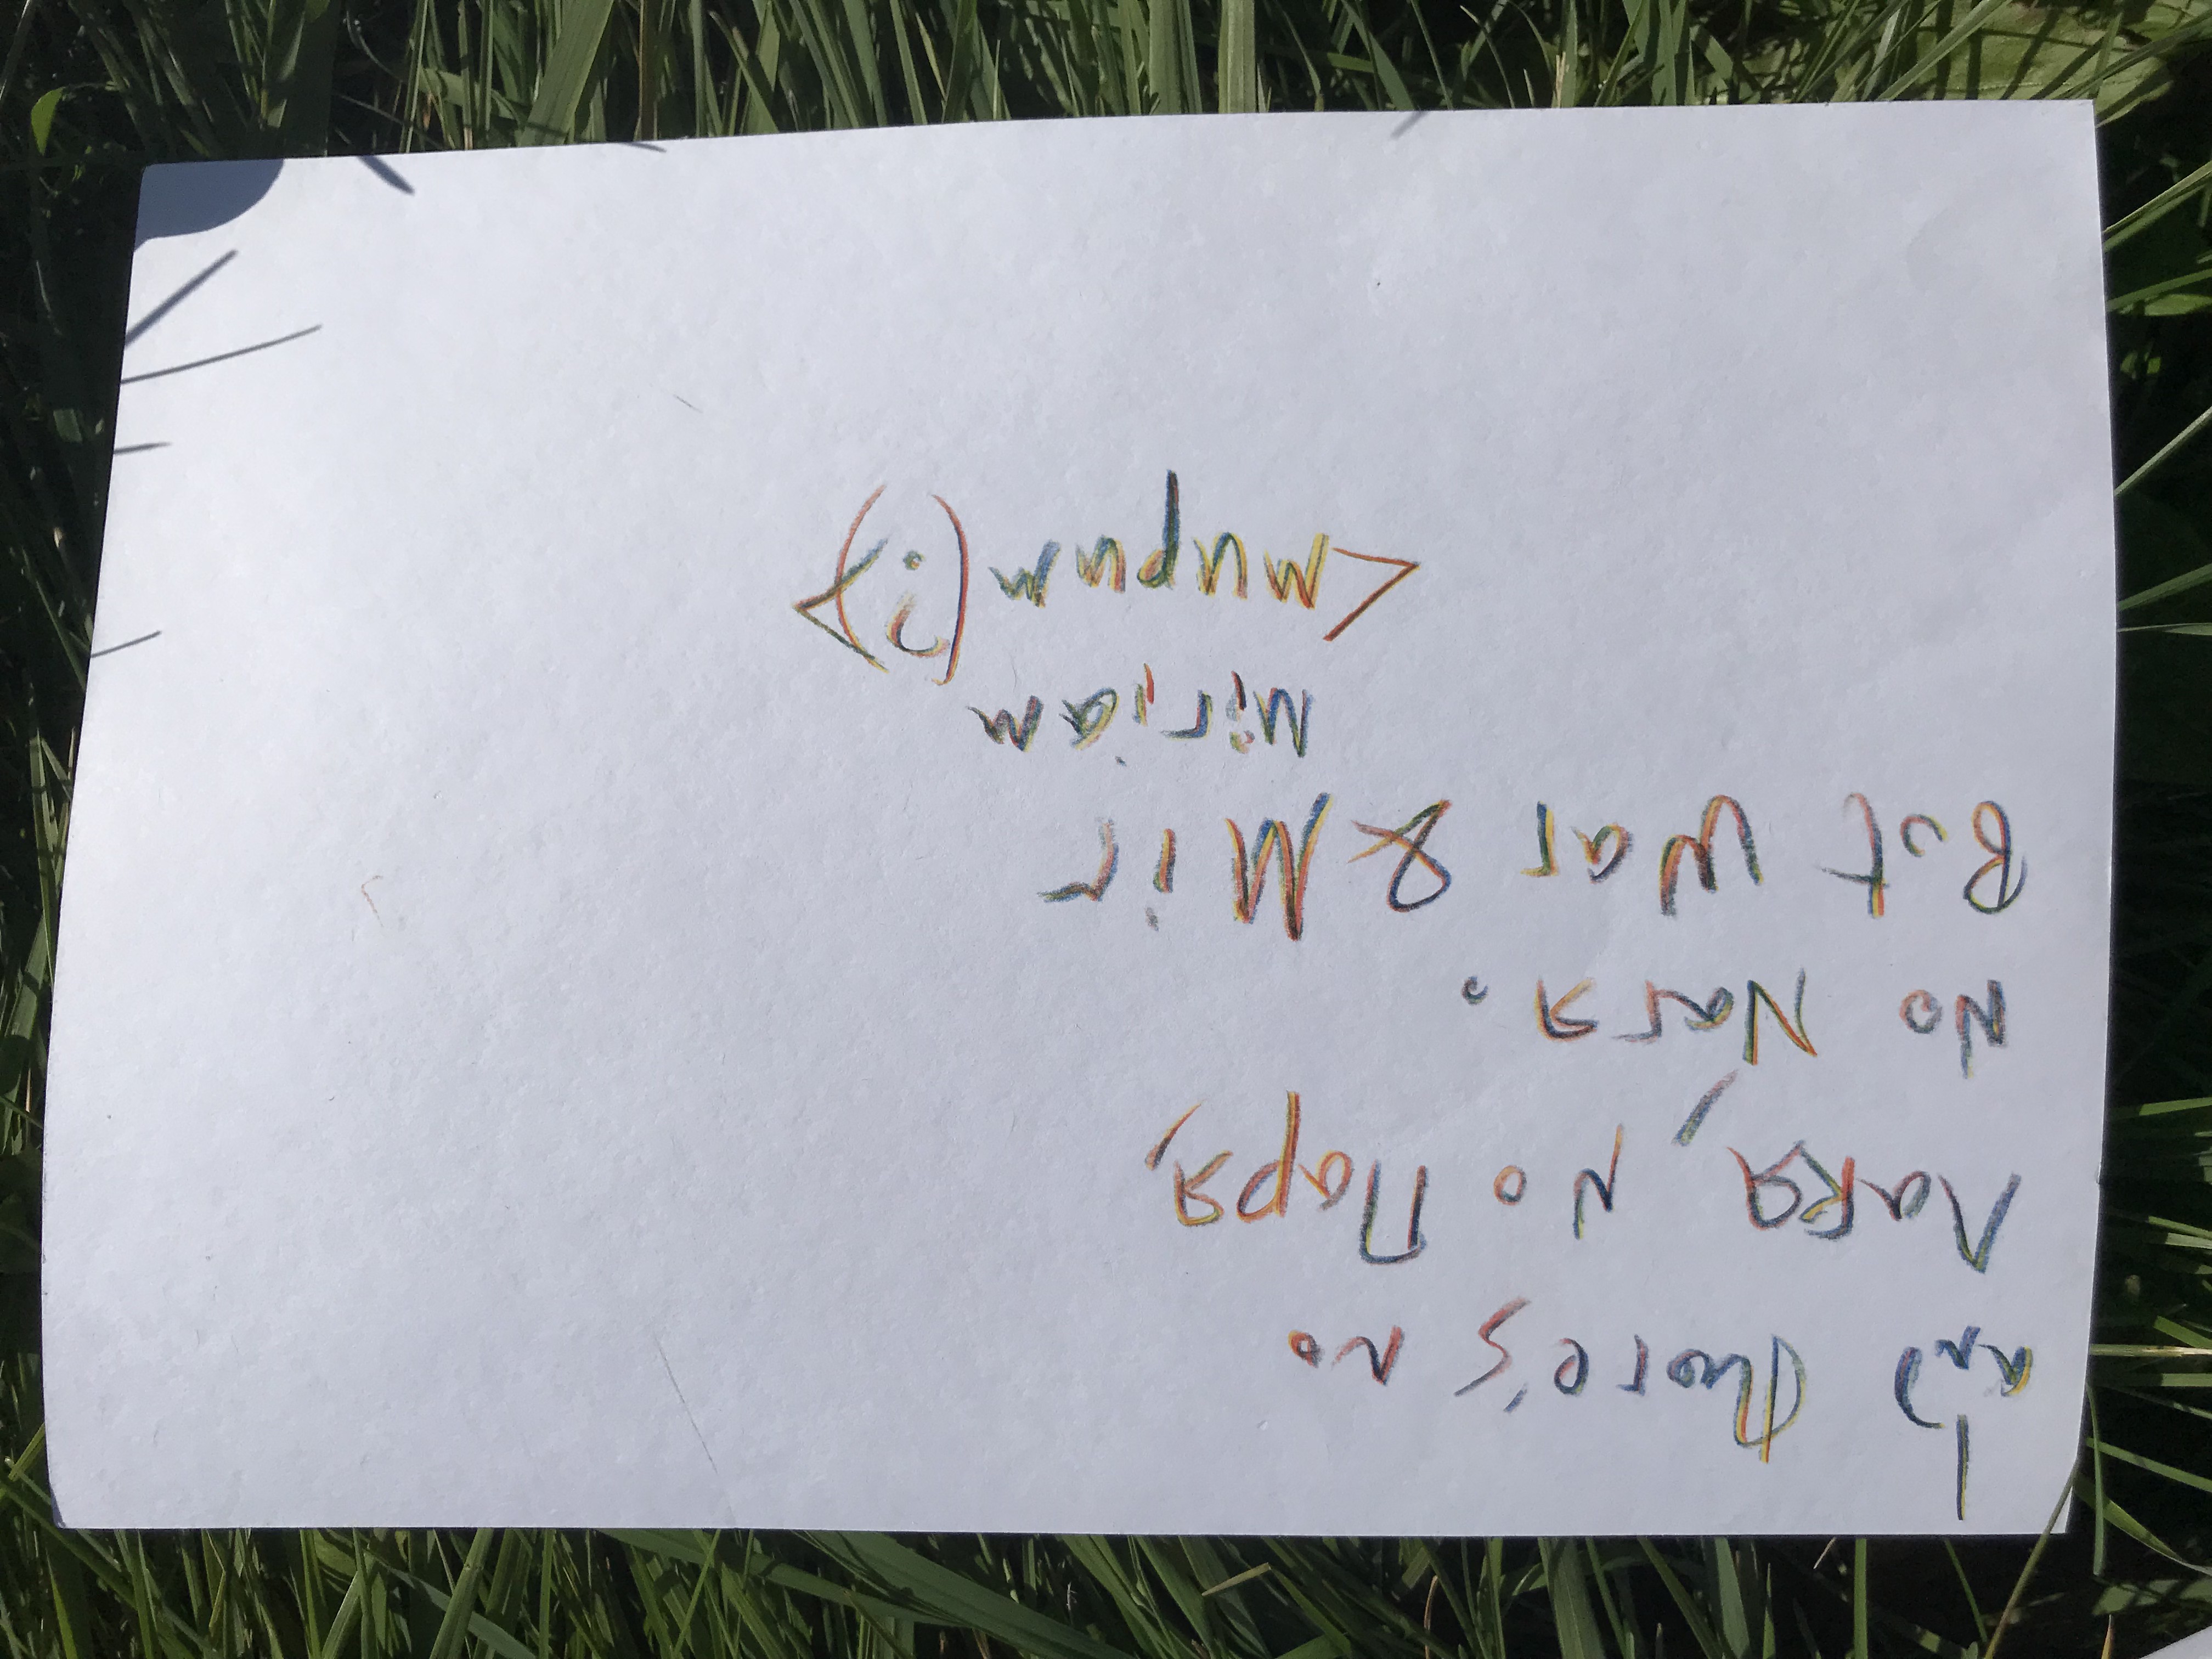 and there's no
Лакя, no Паря,
no Narя.
But War & Mir
Miriam
<мирим(?)>